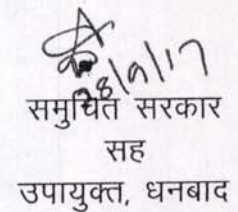 28/9/17
समुचित सरकार
सह
उपायुक्त, धनबाद